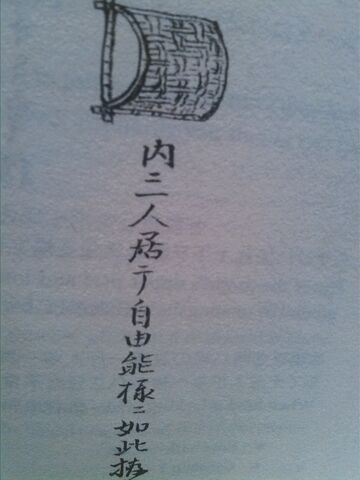 内ニ人居テ自由能様ニ如此拵